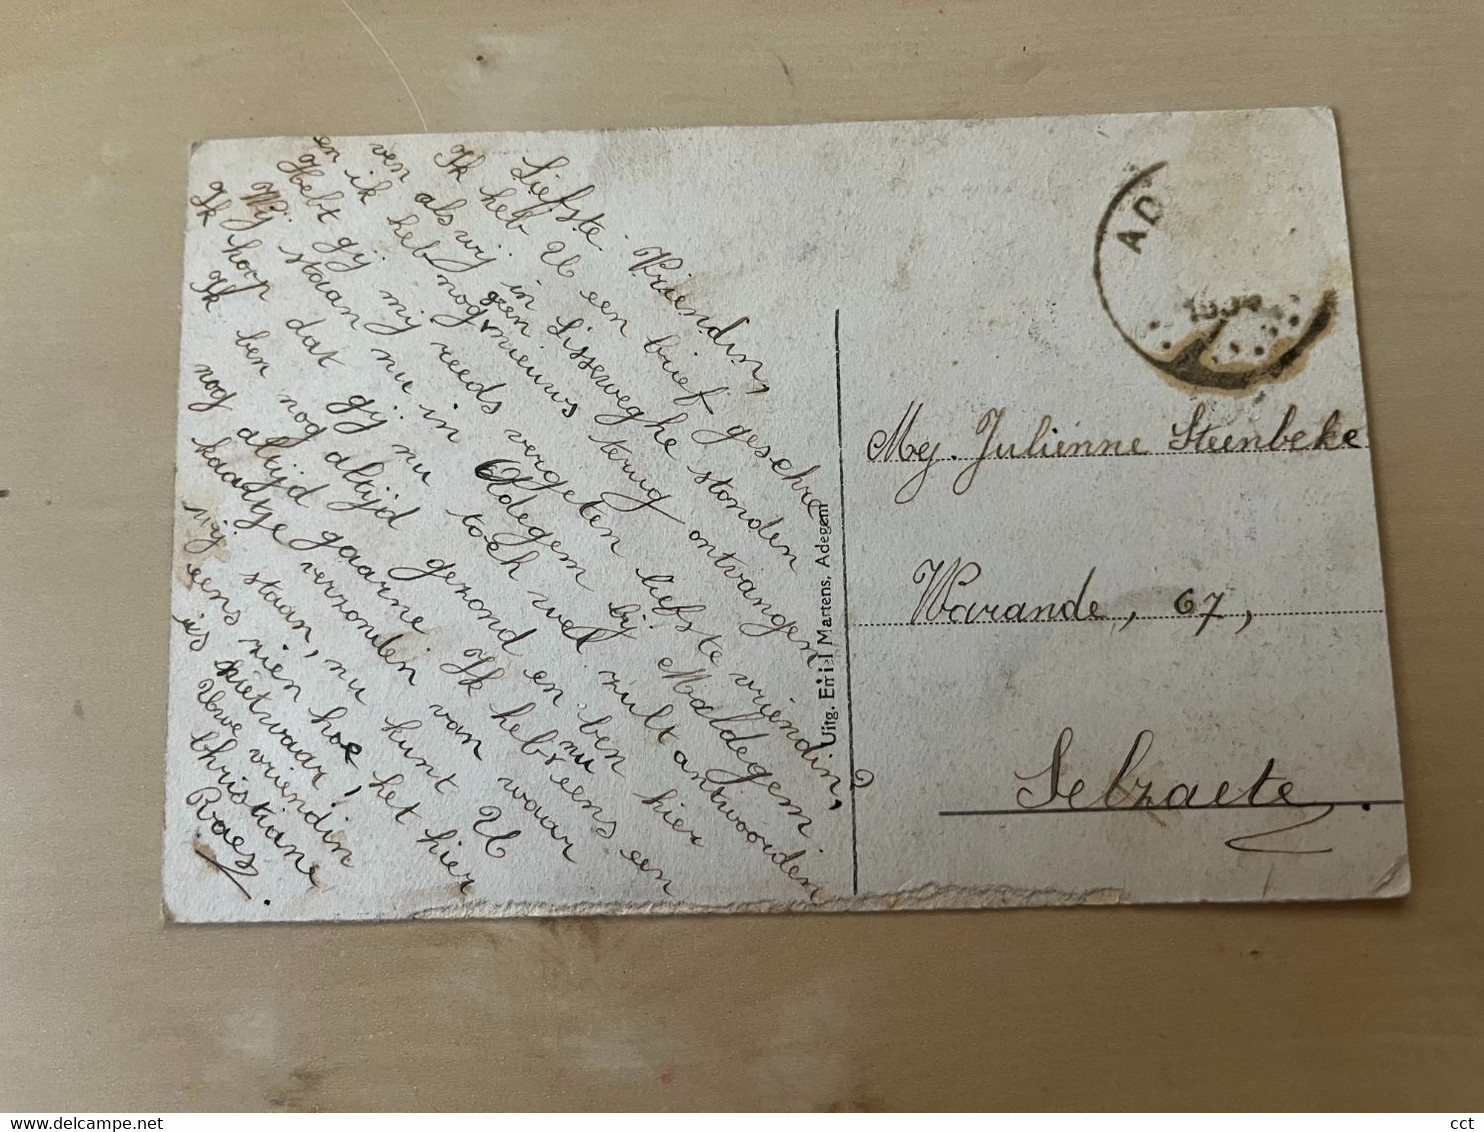 Liefste Vriendin,
Ik heb U een brief geschre
ven als wij in Lisseweghe stonden
en ik heb nog geen nieuws terug ontvangen
Hebt gij mij reeds vergeten liefste vriendin?
Wij staan nu in Adegem bij Maldegem.
Ik hoop dat gij nu toch wel zult antwoorden
Ik ben nog altijd gezond en ben nu hier
nog altijd gaarne Ik heb eens een
kaartje verzonden van waar
wij staan, nu kunt U
eens zien hoe het hier
is nietwaar,
Uwe vriendin
Christiane
Raes.
Uitg. Emiel Martens, Adegem
AD
1934
Mej. Julienne Steenbeke
Warande, 67,
Selzaete.
cct